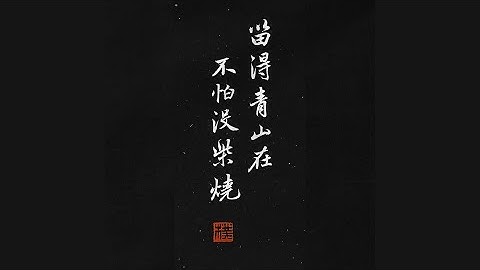 留得青山在
不怕沒柴燒